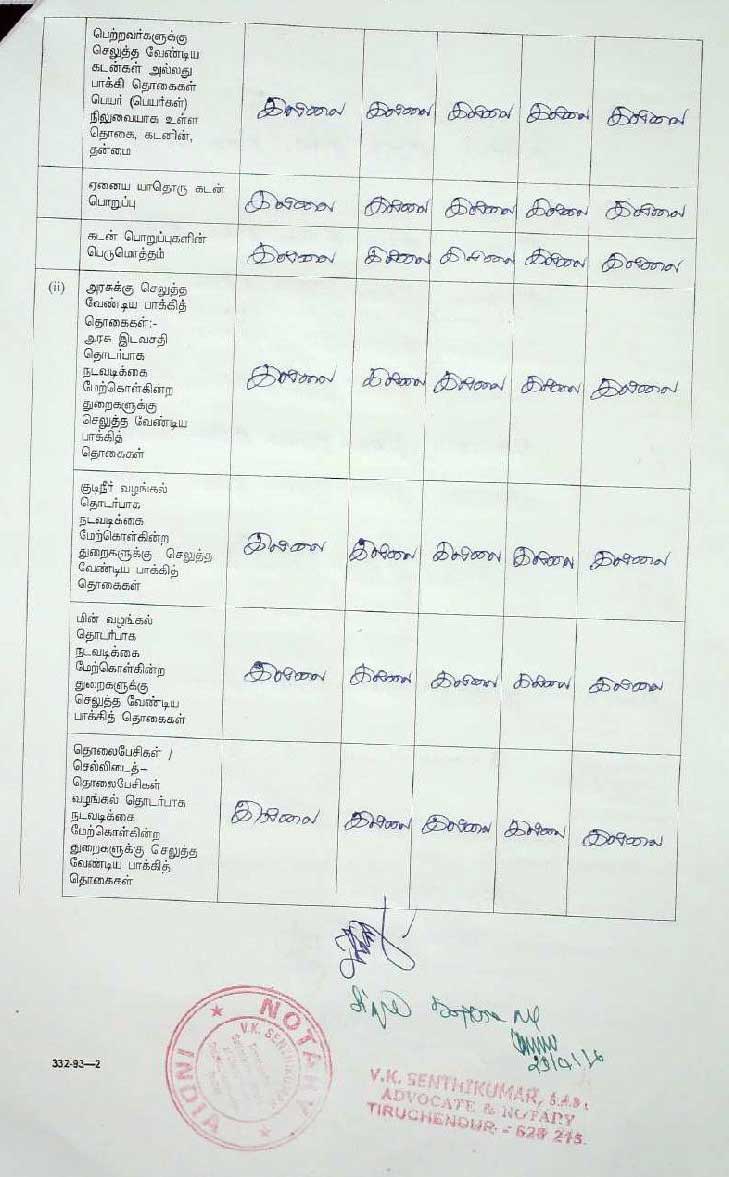 பெற்றவர்களுக்கு
செலுத்த வேண்டிய
கடன்கள் அல்லது
பாக்கி தொகைகள்
பெயர் (பெயர்கள்)
நிலுவையாக உள்ள
தொகை, கடனின்,
தன்மை
இல்லை இல்லை இல்லை இல்லை இல்லை
ஏனைய யாதொரு கடன்
பொறுப்பு
இல்லை இல்லை இல்லை இல்லை இல்லை
கடன் பொறுப்புகளின்
பெடுமொத்தம்
இல்லை இல்லை இல்லை இல்லை இல்லை
(ii) அரசுக்கு செலுத்த
வேண்டிய பாக்கித்
தொகைகள்:-
அரசு இடவசதி
தொடர்பாக
நடவடிக்கை
மேற்கொள்கின்ற
துறைகளுக்கு
செலுத்த வேண்டிய
பாக்கித்
தொகைகள்
இல்லை இல்லை இல்லை இல்லை இல்லை
குடிநீர் வழங்கல்
தொடர்பாக
நடவடிக்கை
மேற்கொள்கின்ற
துறைகளுக்கு செலுத்த
வேண்டிய பாக்கித்
தொகைகள்
இல்லை இல்லை இல்லை இல்லை இல்லை
மின் வழங்கல்
தொடர்பாக
நடவடிக்கை
மேற்கொள்கின்ற
துறைகளுக்கு
செலுத்த வேண்டிய
பாக்கித் தொகைகள்
இல்லை இல்லை இல்லை இல்லை இல்லை
தொலைபேசிகள் /
செல்லிடைத்–
தொலைபேசிகள்
வழங்கல் தொடர்பாக
நடவடிக்கை
மேற்கொள்கின்ற
துறைகளுக்கு செலுத்த
வேண்டிய பாக்கித்
தொகைகள்
இல்லை இல்லை இல்லை இல்லை இல்லை
NOTARY
INDIA
V.K. SENTHIKUMAR
332-93—2
V.K. SENTHIKUMAR,
ADVOCATE & NOTARY
TIRUCHENDUR - 628 215.